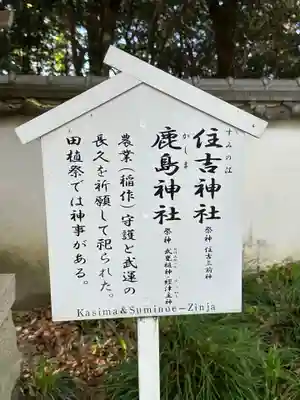 すみの江
住吉神社 祭神 住吉三前神
かしま
鹿島神社 祭神 武甕槌神・経津主神
農業(稲作)守護と武運の
長久を祈願して祀られた。
田植祭では神事がある。
Kasima＆Suminoe－Zinja